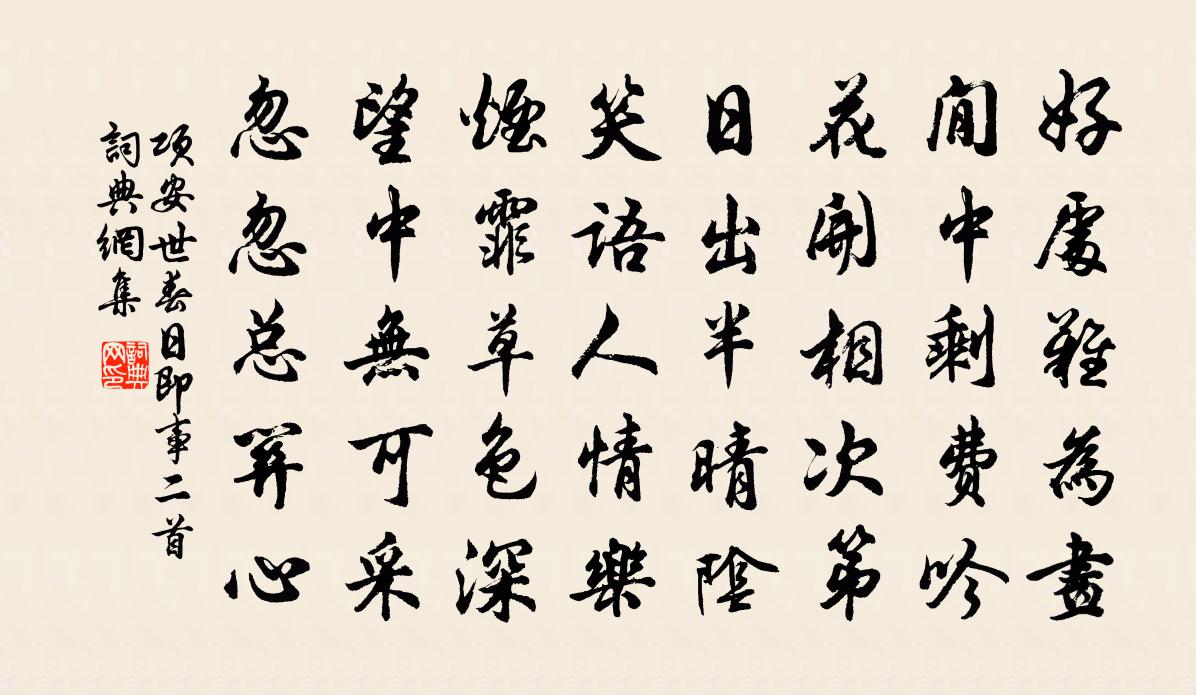 好處難為畫
閒中剩費吟
花開相次第
日出半晴陰
笑語人情樂
煙霏草色深
望中無可采
忽忽總關心
項安世春日即事二首
詞典網集
詞典网印